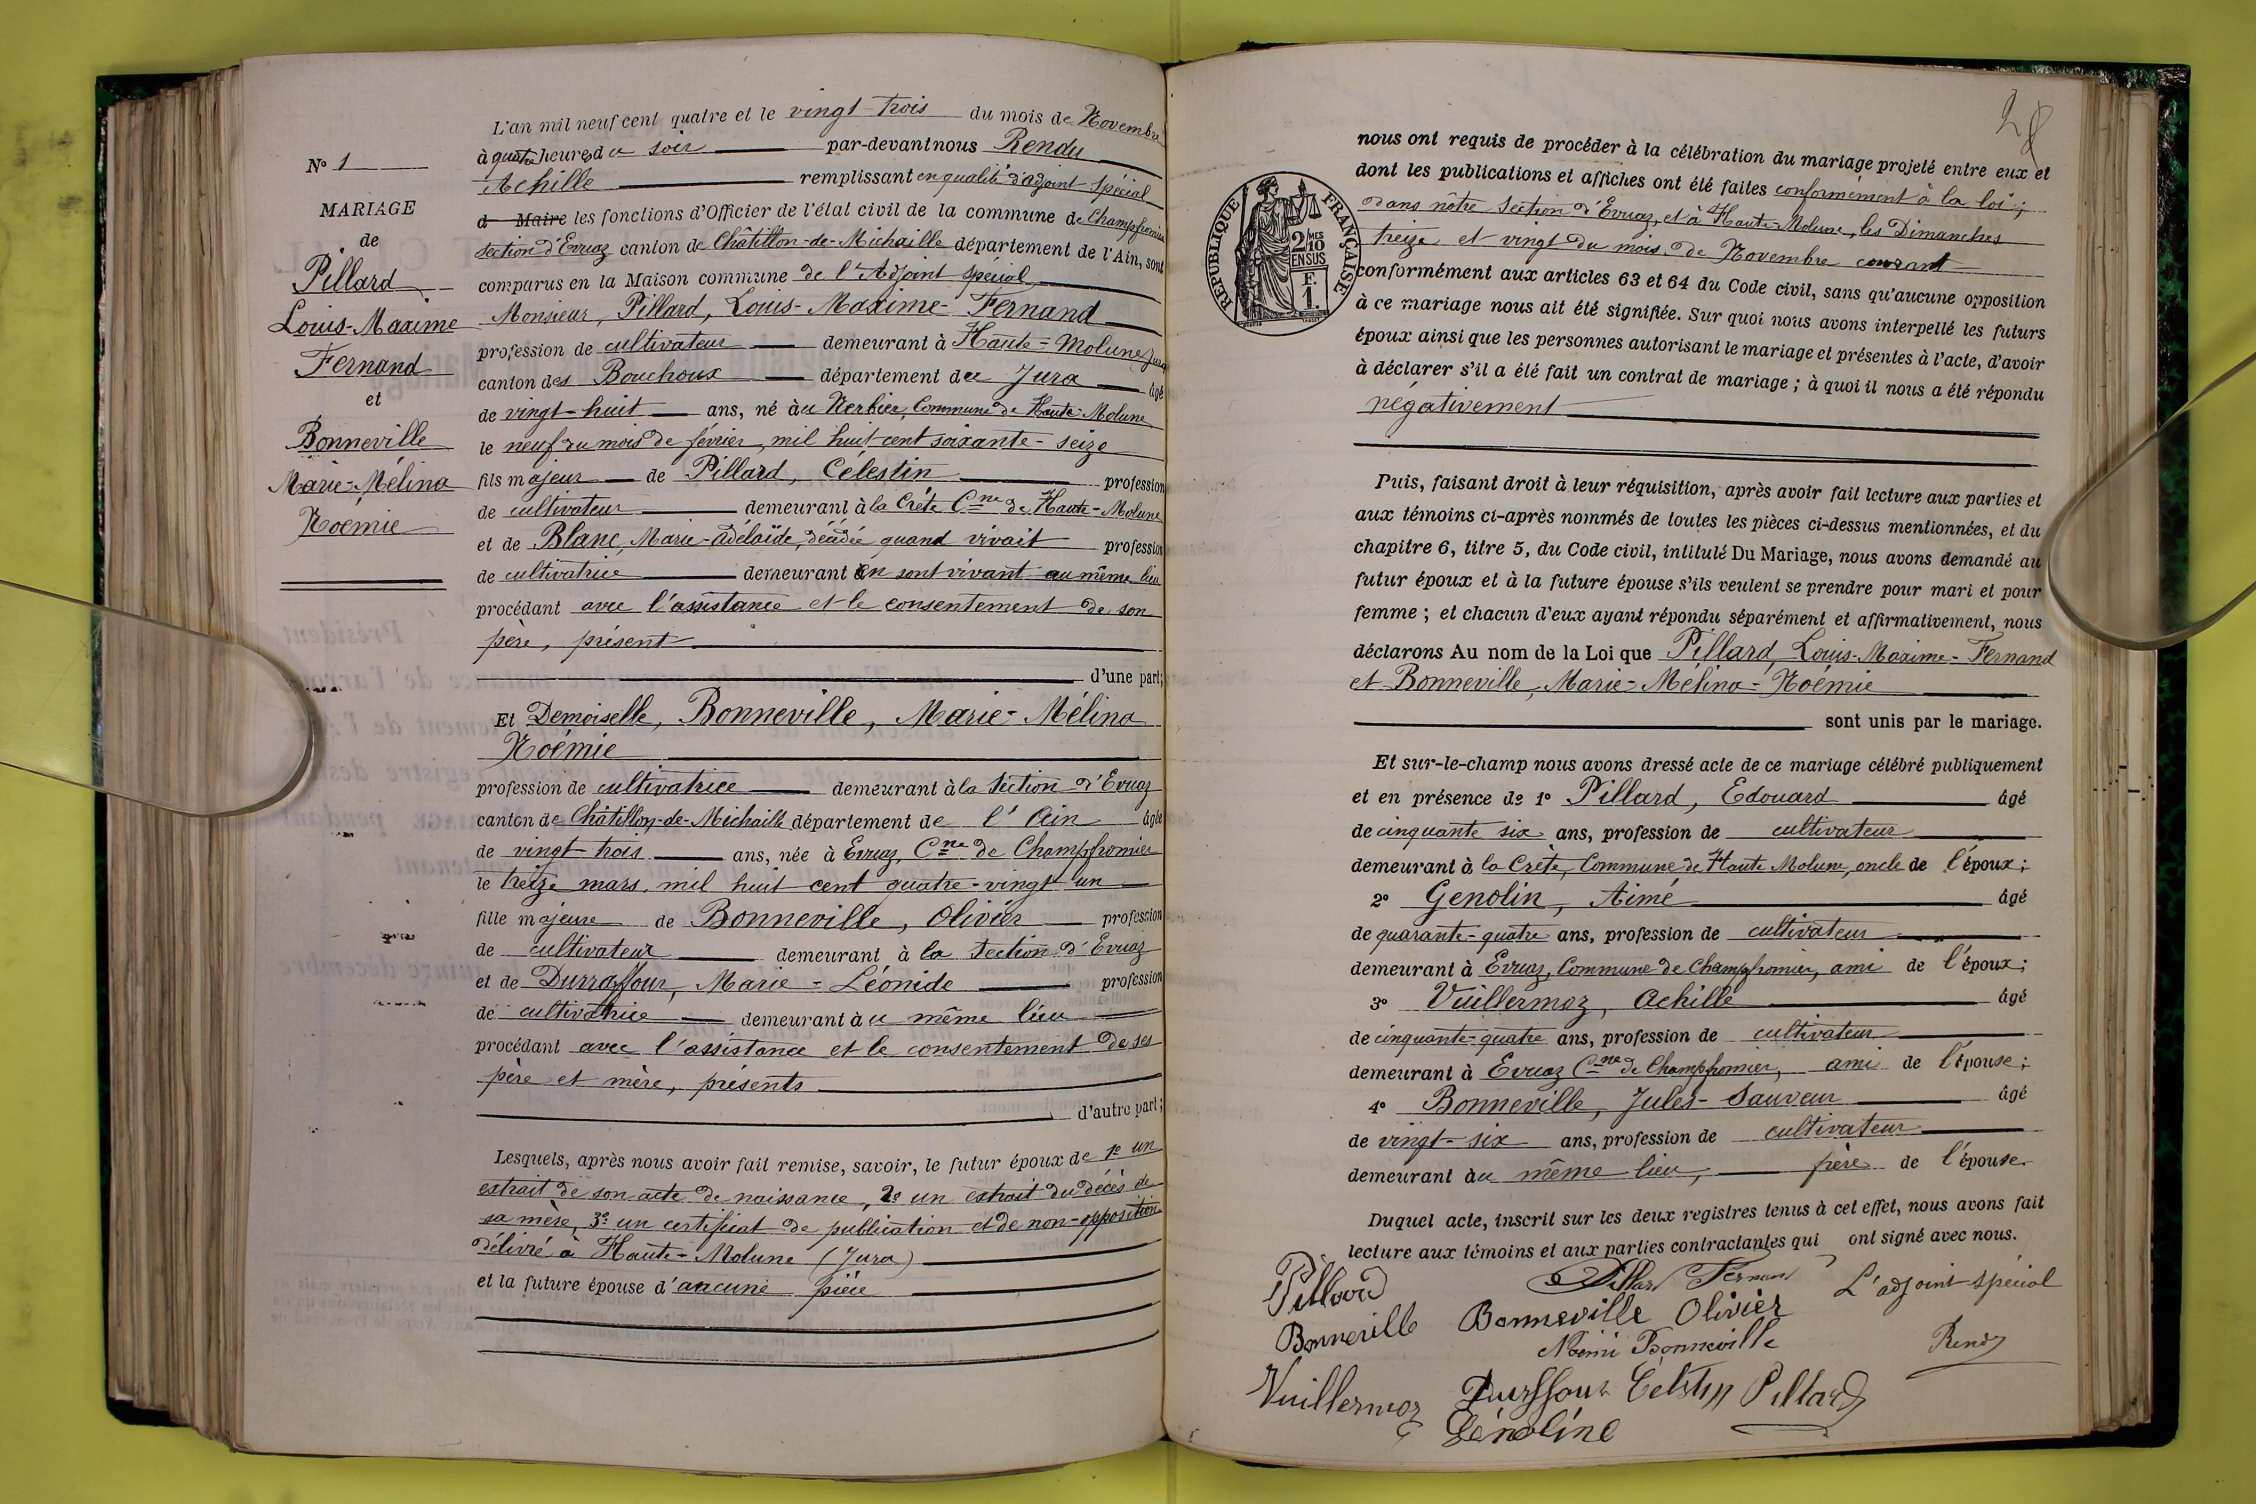 N° 1
MARIAGE
de
Pillard
Louis-Maxime
Fernand
et
Bonneville
Marie-Mélina
Noémie
L'an mil neuf cent quatre et le vingt-trois du mois de Novembre
à quatre heures du soir par-devant nous Rendu
Achille remplissant en qualité d'adjoint spécial
d Maire les fonctions d'Officier de l'état civil de la commune de Champfromier
section d'Evuaz canton de Châtillon-de-Michaille département de l'Ain, sont
comparus en la Maison commune de l'Adjoint spécial
Monsieur, Pillard, Louis-Maxime-Fernand
profession de cultivateur demeurant à Haute-Molune Jura
canton des Bouchoux département du Jura âgé
de vingt-huit ans, né au Nerbier, Commune de Haute-Molune
le neuf du mois de février, mil huit cent soixante-seize
fils majeur de Pillard, Célestin profession
de cultivateur demeurant à la Crête Cne de Haute-Molune
et de Blanc, Marie-Adélaïde, décédée quand vivait profession
de cultivatrice demeurant en sont vivant au même lieu
procédant avec l'assistance et le consentement de son
père, présent
d'une part;
Et Demoiselle, Bonneville, Marie-Mélina
Noémie
profession de cultivatrice demeurant à la section d'Evuaz
canton de Châtillon-de-Michaille département de l'Ain âgée
de vingt-trois ans, née à Evuaz, Cne de Champfromier
le treize mars mil huit cent quatre-vingt-un
fille majeure de Bonneville, Olivier profession
de cultivateur demeurant à la section d'Evuaz
et de Durraffour, Marie-Léonide profession
de cultivatrice demeurant au même lieu
procédant avec l'assistance et le consentement de ses
père et mère, présents
d'autre part;
Lesquels, après nous avoir fait remise, savoir, le futur époux de 1° un
extrait de son acte de naissance, 2° un extrait du décès de
sa mère, 3° un certificat de publication et de non-opposition
délivré à Haute-Molune (Jura)
et la future épouse d'aucune pièce
28
REPUBLIQUE FRANÇAISE
2/10 MES
EN SUS
F.
1.
nous ont requis de procéder à la célébration du mariage projeté entre eux et
dont les publications et affiches ont été faites conformément à la loi;
dans nôtre section d'Evuaz, et à Haute-Molune, les Dimanches
treize et vingt du mois de Novembre courant
conformément aux articles 63 et 64 du Code civil, sans qu'aucune opposition
à ce mariage nous ait été signifiée. Sur quoi nous avons interpellé les futurs
époux ainsi que les personnes autorisant le mariage et présentes à l'acte, d'avoir
à déclarer s'il a été fait un contrat de mariage; à quoi il nous a été répondu
négativement
Puis, faisant droit à leur réquisition, après avoir fait lecture aux parties et
aux témoins ci-après nommés de toutes les pièces ci-dessus mentionnées, et du
chapitre 6, titre 5, du Code civil, intitulé Du Mariage, nous avons demandé au
futur époux et à la future épouse s'ils veulent se prendre pour mari et pour
femme; et chacun d'eux ayant répondu séparément et affirmativement, nous
déclarons Au nom de la Loi que Pillard, Louis-Maxime-Fernand
et Bonneville, Marie-Mélina-Noémie
sont unis par le mariage.
Et sur-le-champ nous avons dressé acte de ce mariage célébré publiquement
et en présence de 1° Pillard, Edouard âgé
de cinquante six ans, profession de cultivateur
demeurant à la Crète, Commune de Haute Molune, oncle de l'époux;
2° Genolin, Aimé âgé
de quarante-quatre ans, profession de cultivateur
demeurant à Evuaz, Commune de Champfromier, ami de l'époux;
3° Vuillermoz, Achille âgé
de cinquante-quatre ans, profession de cultivateur
demeurant à Evuaz Cne de Champfromier, ami de l'épouse;
4° Bonneville, Jules-Sauveur âgé
de vingt-six ans, profession de cultivateur
demeurant au même lieu, frère de l'épouse.
Duquel acte, inscrit sur les deux registres tenus à cet effet, nous avons fait
lecture aux témoins et aux parties contractantes qui ont signé avec nous.
Pillard Pillard Fernand L'adjoint spécial
Bonneville Bonneville Olivier
Noémi Bonneville Rendu
Vuillermoz Durffour Célstin Pillard
Génoline